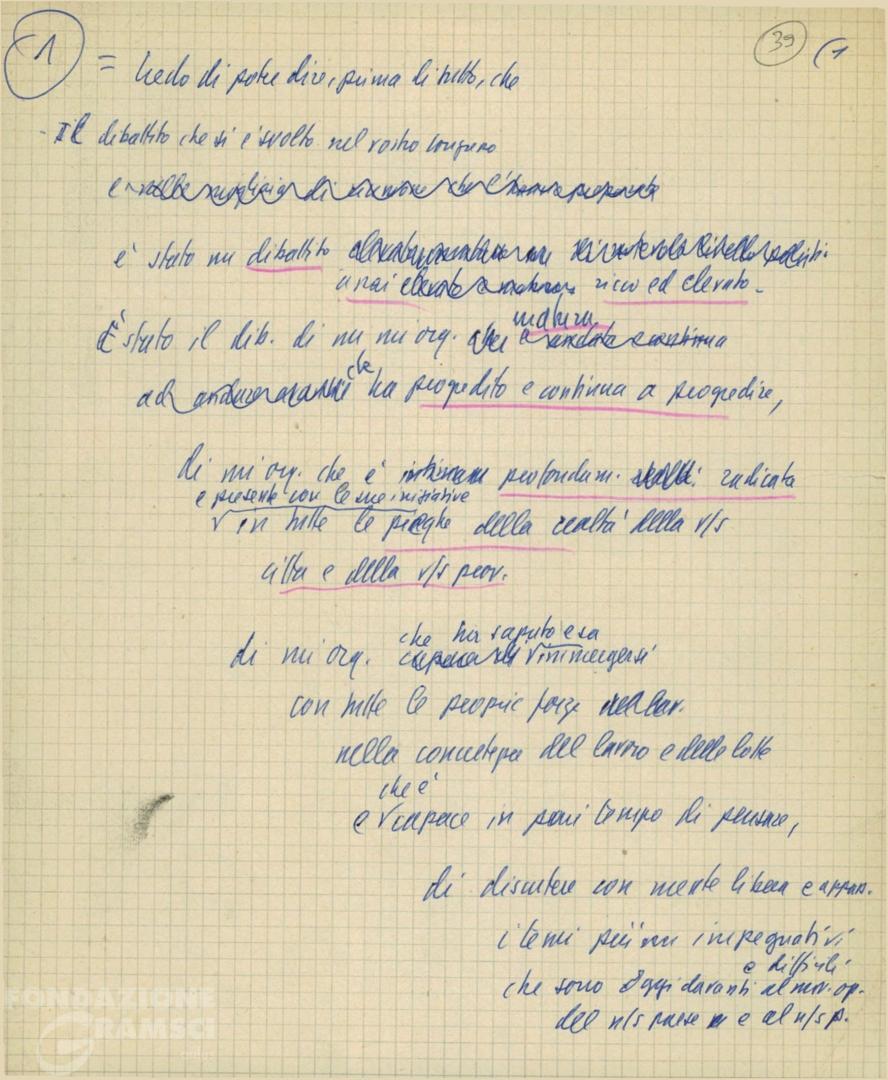 1
39 (1
= Credo di poter dire, prima di tutto, che
- Il dibattito che si è svolto nel vostro congresso
è stato un dibattito
assai ricco ed elevato -
matura
È stato il dib. di un' org. che
che ha progredito e continua a progredire,
di un' org. che è profondam. radicata
e presente con le sue iniziative
in tutte le pieghe della realtà della v/s
città e della v/s prov.
che ha saputo e sa
di un' org. immergersi
con tutte le proprie forze
nella concretezza del lavoro e delle lotte
che è
e capace in pari tempo di pensare,
di discutere con mente libera e appass.
i temi più impegnativi
e difficili
che sono oggi davanti al mov. op.
del n/s paese e al n/s p.
FONDAZIONE
GRAMSCI